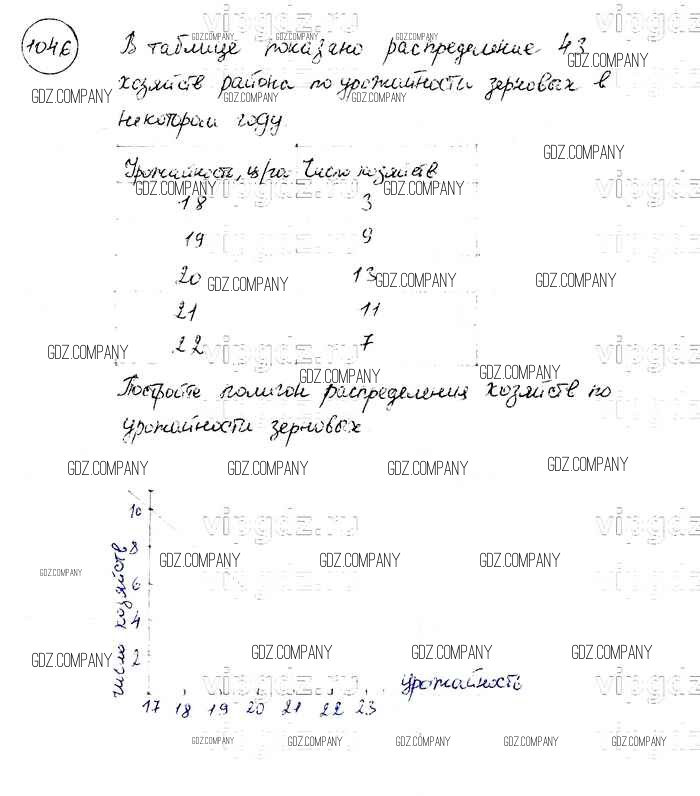 1046
В таблице показано распределение 43
хозяйств района по урожайности зерновых в
некотором году
Урожайность, ц/га Число хозяйств
18 3
19 9
20 13
21 11
22 7
Постройте полигон распределения хозяйств по
урожайности зерновых
число хозяйств
10
8
6
4
2
17 18 19 20 21 22 23
урожайность
GDZ.COMPANY
vipgdz.ru